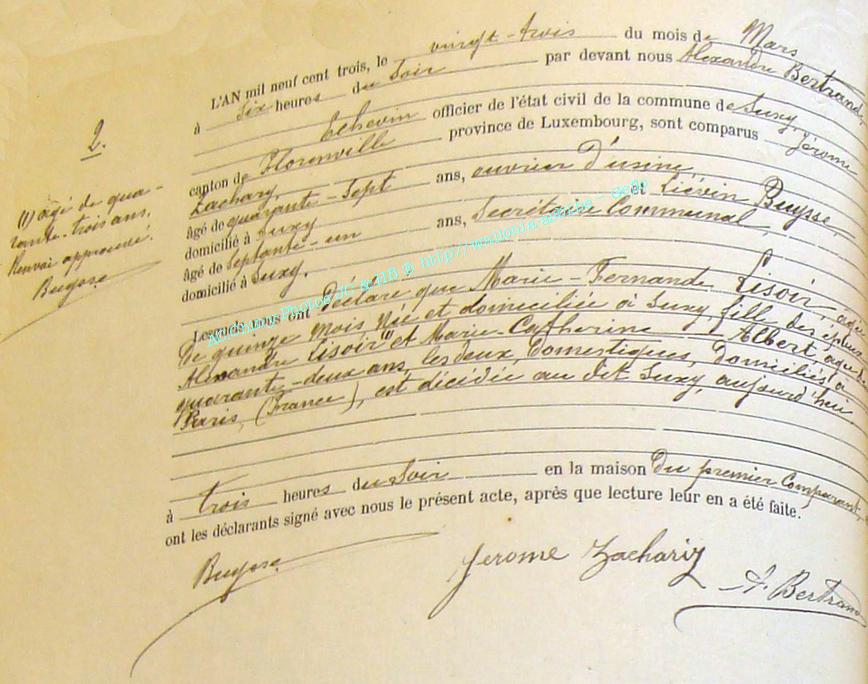 2.
(1) âgé de qua-
rante-trois ans.
Renvoi approuvé.
Buysse
L'AN mil neuf cent trois, le vingt-trois du mois de Mars
à Six heures du Soir par devant nous Alexandre Bertrand,
Echevin officier de l'état civil de la commune de Suxy,
canton de Florenville province de Luxembourg, sont comparus Jérome
Zachary
âgé de quarante-sept ans, ouvrier d'usine,
domicilié à Suxy et Liévin Buysse,
âgé de Septante-un ans, Secrétaire Communal
domicilié à Suxy.
Lesquels nous ont déclaré que Marie-Fernande Lisoir, agée
de quinze mois, née et domiciliée à Suxy, fille des époux
Alexandre Lisoir (1) et Marie-Catherine Albert, agée de
quarante-deux ans, les deux domestiques, domiciliés à
Paris, (France), est décédée au dit Suxy, aujourd'hui
à trois heures du Soir en la maison du premier Comparant,
ont les déclarants signé avec nous le présent acte, après que lecture leur en a été faite.
Buysse Jerome Zachariz A. Bertrand